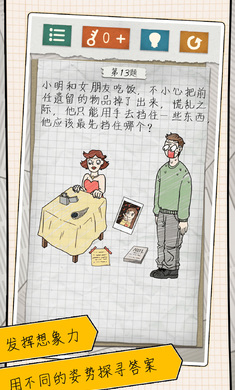 0+
第13题
小明和女朋友吃饭，不小心把前
任遗留的物品掉了出来，慌乱之
际，他只能用手去挡住一些东西
他应该最先挡住哪个？
发挥想象力
用不同的姿势探寻答案